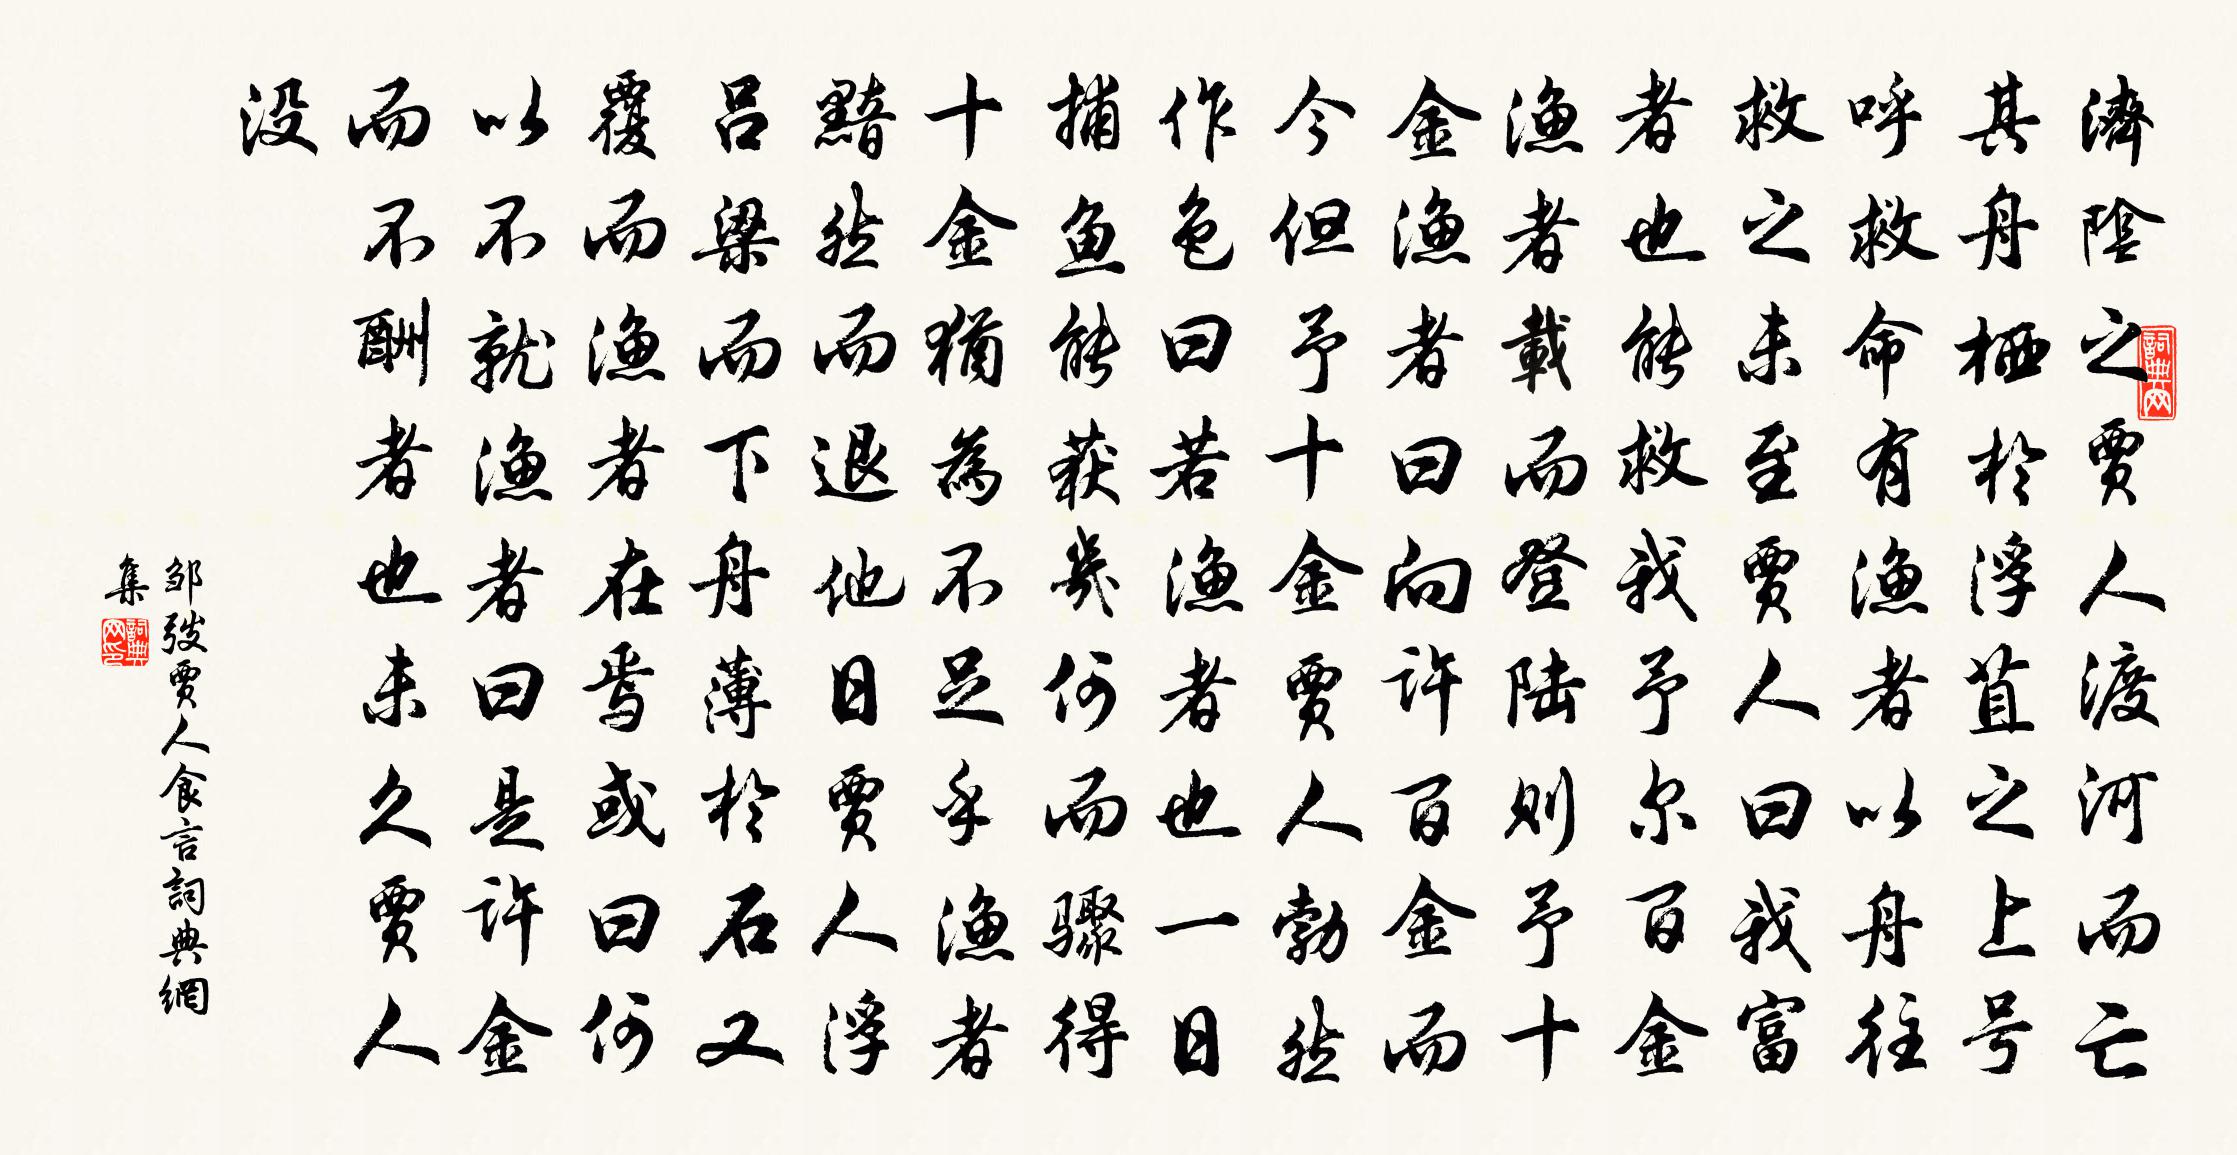 濟陰之賈人渡河而亡
其舟栖於浮苴之上号
呼救命有渔者以舟往
救之未至賈人曰我富
者也能救我予尔百金
渔者載而登陆则予十
金渔者曰向许百金而
今但予十金賈人勃然
作色曰若渔者也一日
捕魚能获幾何而骤得
十金猶為不足乎渔者
黯然而退他日賈人浮
吕梁而下舟薄於石又
覆而渔者在焉或曰何
以不就渔者曰是许金
而不酬者也未久賈人
没
邹弢賈人食言詞典網
集
詞典网
詞典网印